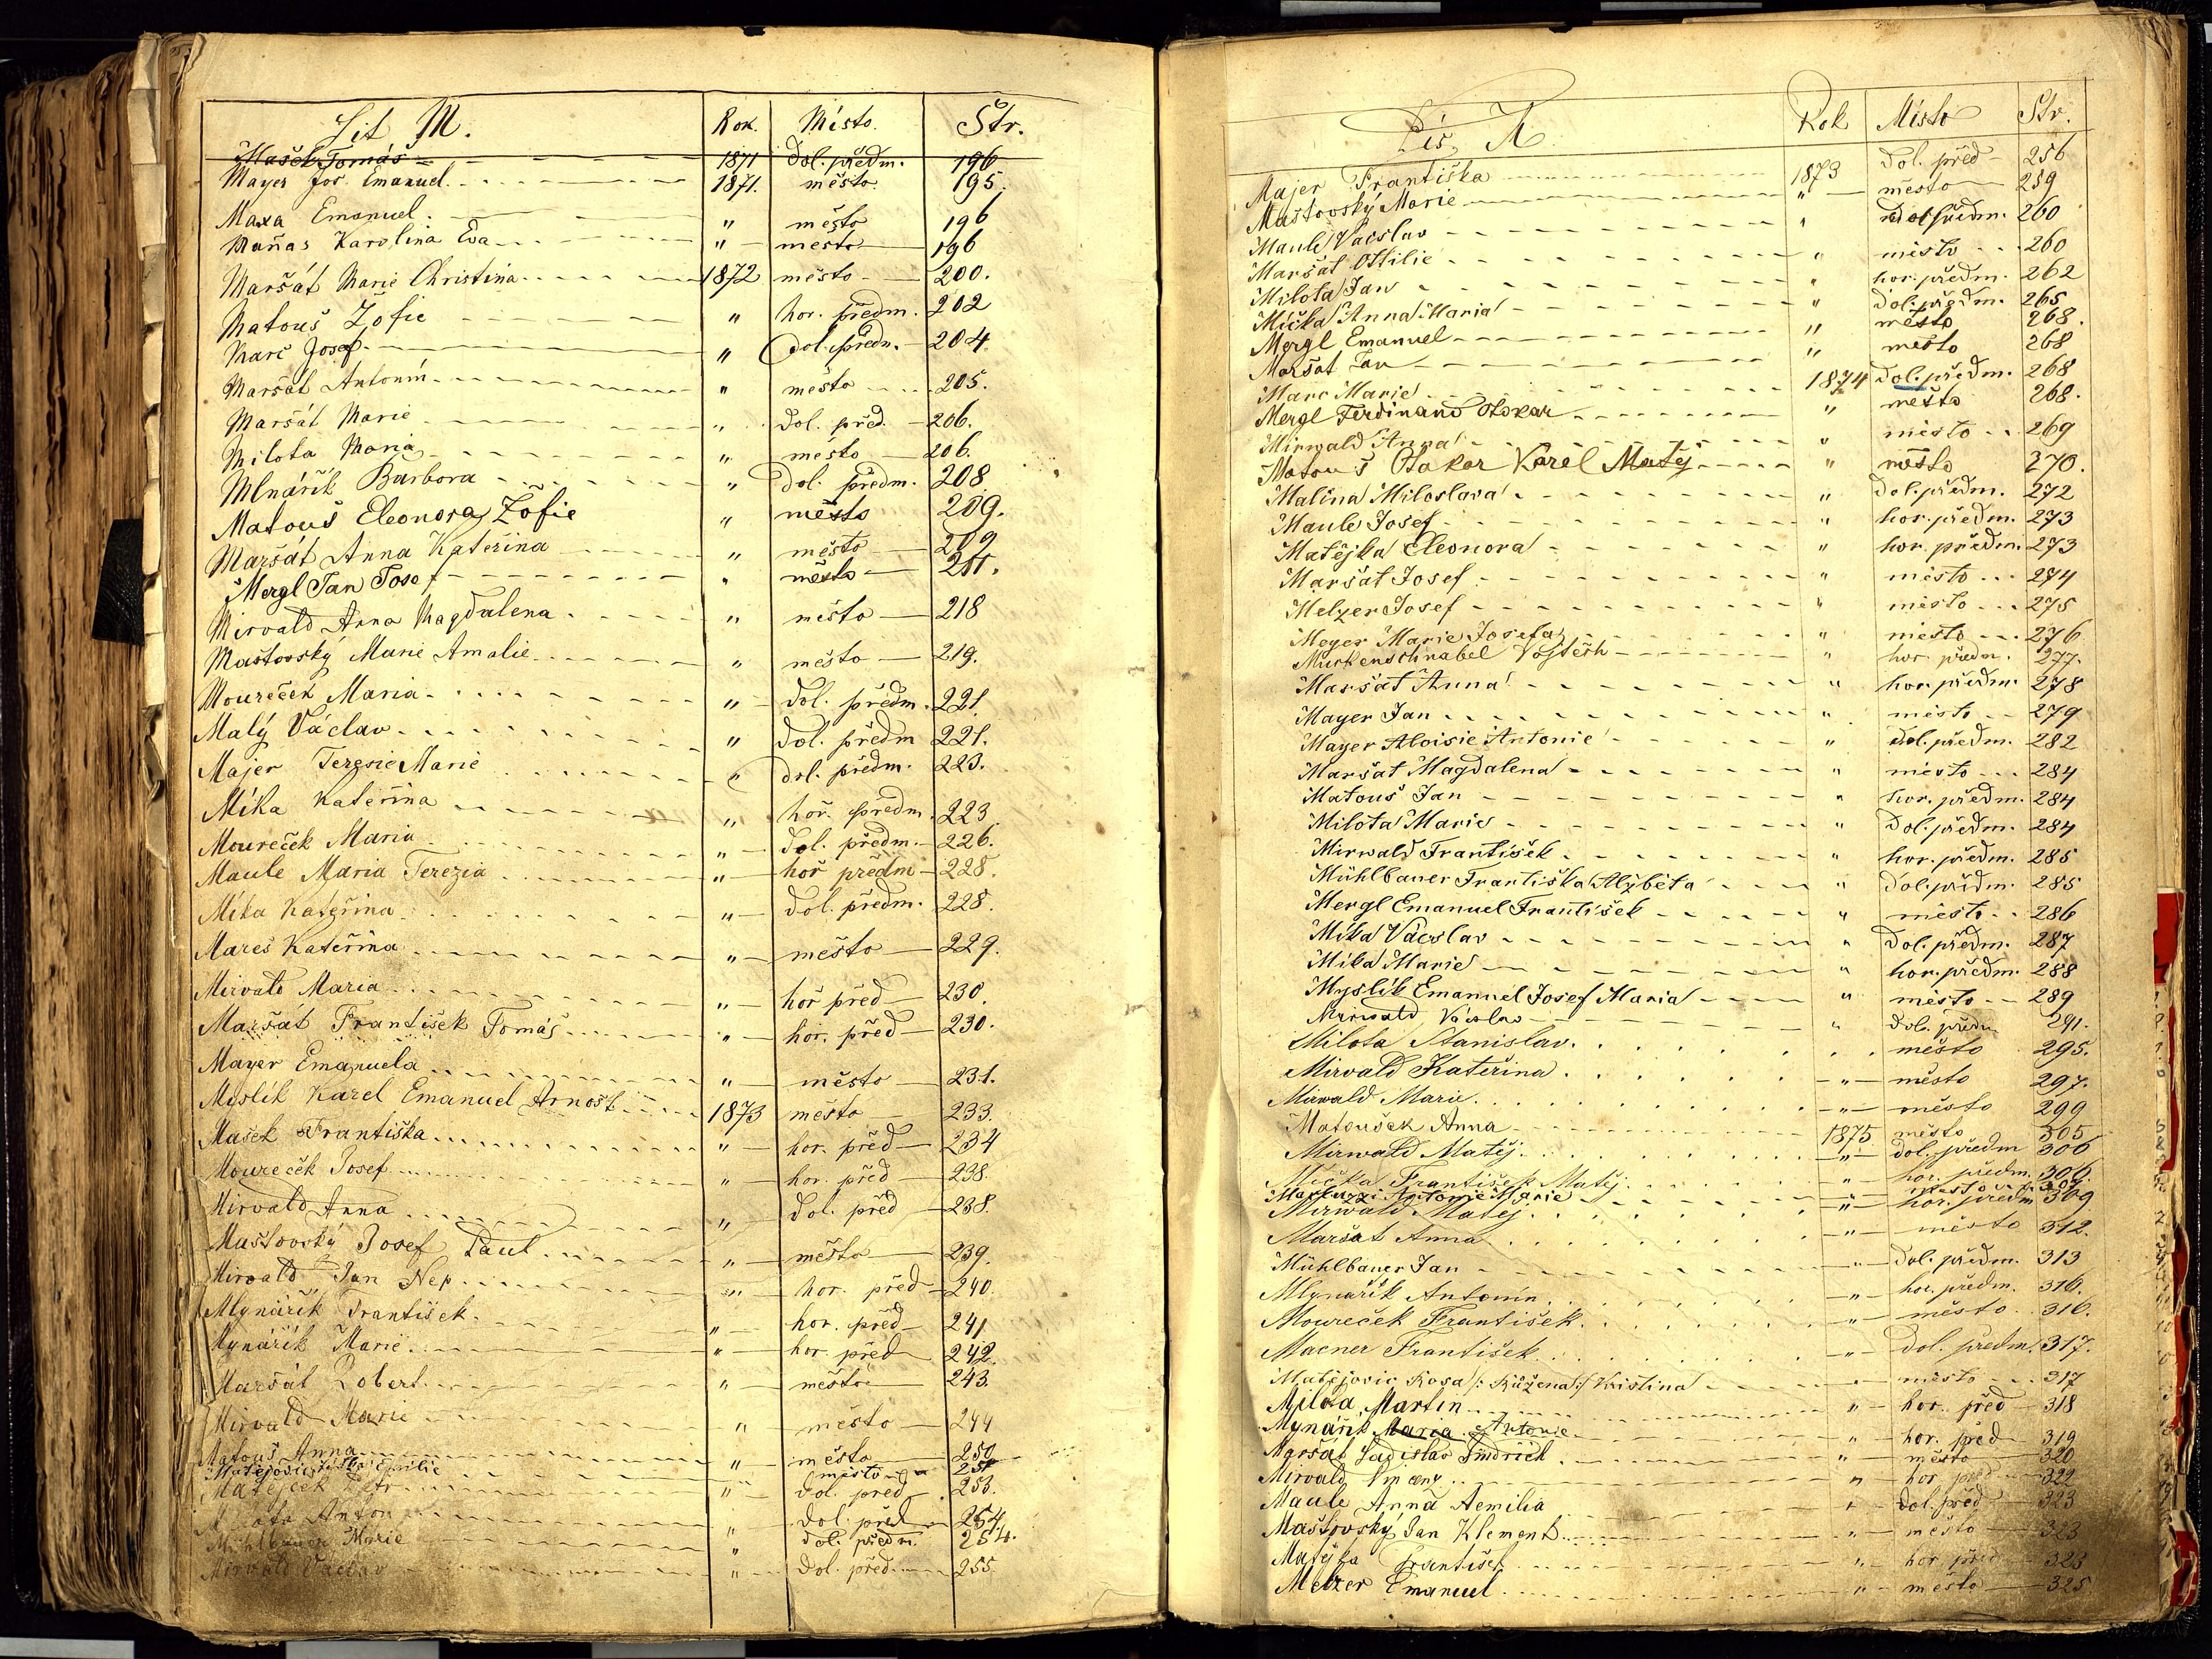 Lit M. Rok. Místo. Str.
Mašek Tomáš 1871 dol. předm. 196
Mayer Jos. Emanuel 1871. město 195.
Maxa Emanuel. " město 196
Maňas Karolina Eva " město 196
Maršát Marie Christina 1872 město 200.
Matouš Žofie " hor. předm. 202
Marc Josef " dol. předm. 204
Maršát Antonín " město 205.
Maršát Marie " dol. před. 206.
Milota Maria " město 206.
Mlnářík Barbora " dol. předm. 208
Matouš Eleonora Žofie " město 209.
Maršát Anna Kateřina " město 209
Mergl Jan Josef " město 211.
Mirvald Anna Magdalena " město 218
Maštovský Marie Amalie " město 219.
Moureček Maria " dol. předm. 221.
Malý Václav " dol. předm 221.
Majer Terezie Marie " dol. předm. 223.
Míka Kateřina " hoř. předm. 223
Moureček Maria " dol. předm. 226.
Maule Maria Terezia " hoř předm 228.
Míka Kateřina " dol. předm. 228.
Mareš Kateřina " město 229.
Mirvald Maria " hoř před 230.
Maršat František Tomáš " hor. před 230.
Mayer Emanuela " město 231.
Myslík Karel Emanuel Arnošt 1873 město 233.
Mašek Františka " hor. před 234
Moureček Josef " hor. před 238.
Mirvald Anna " dol. před 238.
Maštovský Josef Paul " město 239.
Mirvald Jan Nep. " hor. před 240.
Mlynářík František. " hor. před 241
Mynářík Marie. " hor. před 242.
Maršát Robert. " město 243.
Mirvald Marie " město 244
Matouš Anna " město 250
Matějovic Emilie město 251
Matějček Petr " dol. před 253.
Anton " dol. před 254
Mühlbauer Marie " dol. předm. 254.
Mirvald Václav " dol. před. 255.
Lis. M Rok Místo Str.
Majer Františka 1873 dol. před 256
Maštovský Marie " město 259
Maule Václav " dol předm. 260
Maršát Ottilie " město 260
Milota Jan " hor. předm. 262
Mička Anna Maria " dol. předm. 265
Mergl Emanuel " město 268.
Maršat Jan " město 268
Marc Marie 1874 dol. předm. 268
Mergl Ferdinand Otokar " město 268.
Mirwald Anna " město 269
Matouš Otakar Karel Matěj " město 270.
Malina Miloslava " dol. předm. 272
Maule Josef " hor. předm. 273
Matějka Eleonora " hor. předm. 273
Maršat Josef " město 274
Melzer Josef " město 275
Meyer Marie Josefa " město 276
Muckenschnabel Vojtěch " hor. předm. 277.
Maršat Anna " hor. předm. 278
Mayer Jan " město 279
Mayer Aloisie Antonie " dol. předm. 282
Maršat Magdalena " město 284
Matouš Jan " hor. předm. 284
Milota Marie " dol. předm. 284
Mirwald František " hor. předm. 285
Mühlbauer Františka Alžběta " dol. předm. 285
Mergl Emanuel František " město 286
Míka Václav " dol. předm. 287
Míka Marie " hor. předm. 288
Myslík Emanuel Josef Maria " město 289
Mirwald Václav " dol. předm 291.
Milota Stanislav. město 295.
Mirvald Kateřina " město 297.
Mirwald Marie " město 299
Matoušek Anna 1875 město 305
Mirwald Matěj " dol. předm 306
Mička František Matěj " hor. předm. 306.
Antonie Marie město
Mirwald Matěj " hor. předm 309
Maršat Anna " město 312.
Mühlbauer Jan " dol. předm. 313
Mlynařík Antonín " hor. předm. 316.
Moureček František " město 316.
Macner František " dol. předm. 317.
Matějovic Rosa /: Růžena :/ Kristina " město 317
Milota Martin " hor. před 318
Mynářík Maria Antonie " hor. před 319
Maršát Ladislav Jindřich " město 320
Mirvald Vincenz " hor. před 322
Maule Anna Aemilia " dol. před 323
Maštovský Jan Klement " město 323
Matějka František " hor. před 323
Melzer Emanuel " město 325